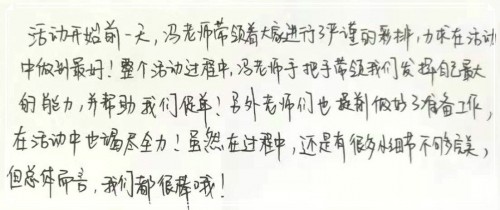 活动开始前一天,冯老师带领着大家进行了严谨的彩排,力求在活动
中做到最好!整个活动过程中,冯老师手把手带领我们发挥自己最大
的能力,并帮助我们促单!另外老师们也提前做好了准备工作,
在活动中也竭尽全力!虽然在过程中,还是有很多小细节不够完美,
但总体而言,我们都很棒哦!